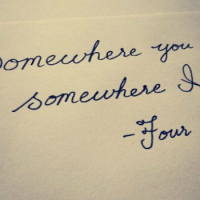 somewhere you
somewhere I
-Four